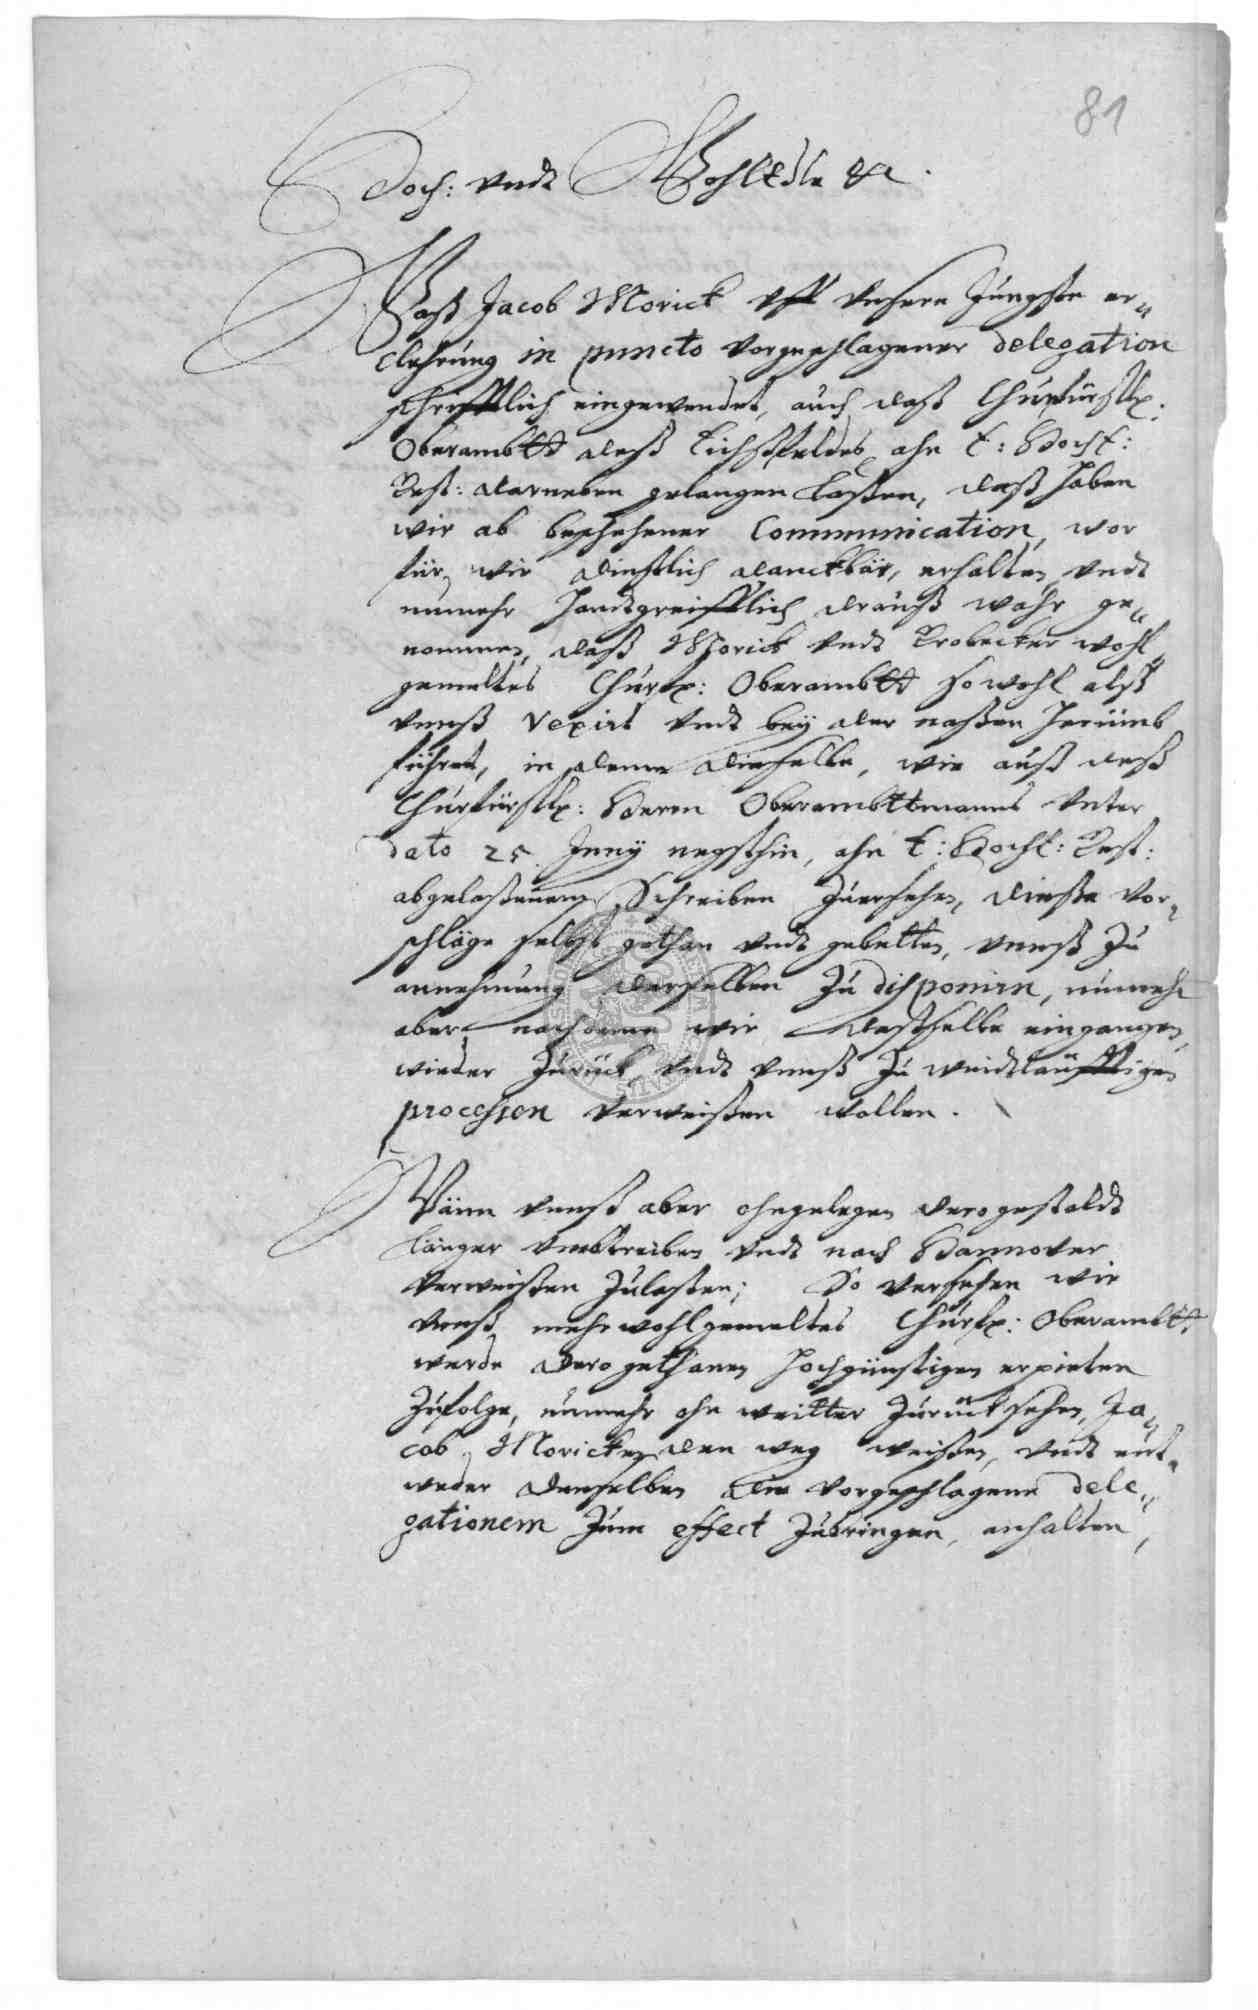 81
Hoch: vndt WohlEdle &c.
Waß Jacob Morick vff vnsere Jüngste er„
clehrung in puncto vorgeschlagener delegation
schrifftlich eingewendet, auch daß Churfürstl:
Oberambtt deß Eichßfeldes ahn E: Hochf:
Rest: darneben gelangen laßen, daß haben
wir ab beschehener Communication, wor
für wir dinstlich danckbar, erhalten vndt
nunmehr handtgreifflich drauß wahr ge„
nommen, daß Morick vndt Brobecker wohl„
gemeltes Churf: Oberambtt sowohl alß
vnnß vexirt vndt bey der naßen herümb
führet, in deme dieselbe, wie auß deß
Churfürstl: Herrn Oberambttmanns vnter
dato 25 Juny negsthin, ahn E: Hochf: Rest:
abgelaßenem Schreiben Zuersehen, dieße vor„
schläge selbst gethan vndt gebetten, vnnß Zu
annehmung derselben Zu disponirn, nunmehr
aber nachdeme wir dasselbe eingangen,
wieder Zurück, vndt vnnß Zu weidtläufftigen
processen verweißen wollen.
Wann vnnß aber ohngelegen dero gestaldt
länger vmbtreiben vndt nach Hannover
verweißen Zulaßen; So versehen wir
vnnß mehrwohlgemeltes Churf: Oberambtt
werde dero gethanen hochgünstigen erpieten
Zufolge, nunmehr ohn weitter Zurücksehen, Ja„
cob Moricken den weg weißen, vndt ent„
weder denselben die vorgeschlagene dele„
gationem Zum effect Zubringen, anhalten,